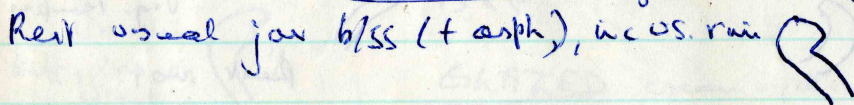 Rest usual jar b/ss (+ asph.), inc us. rim